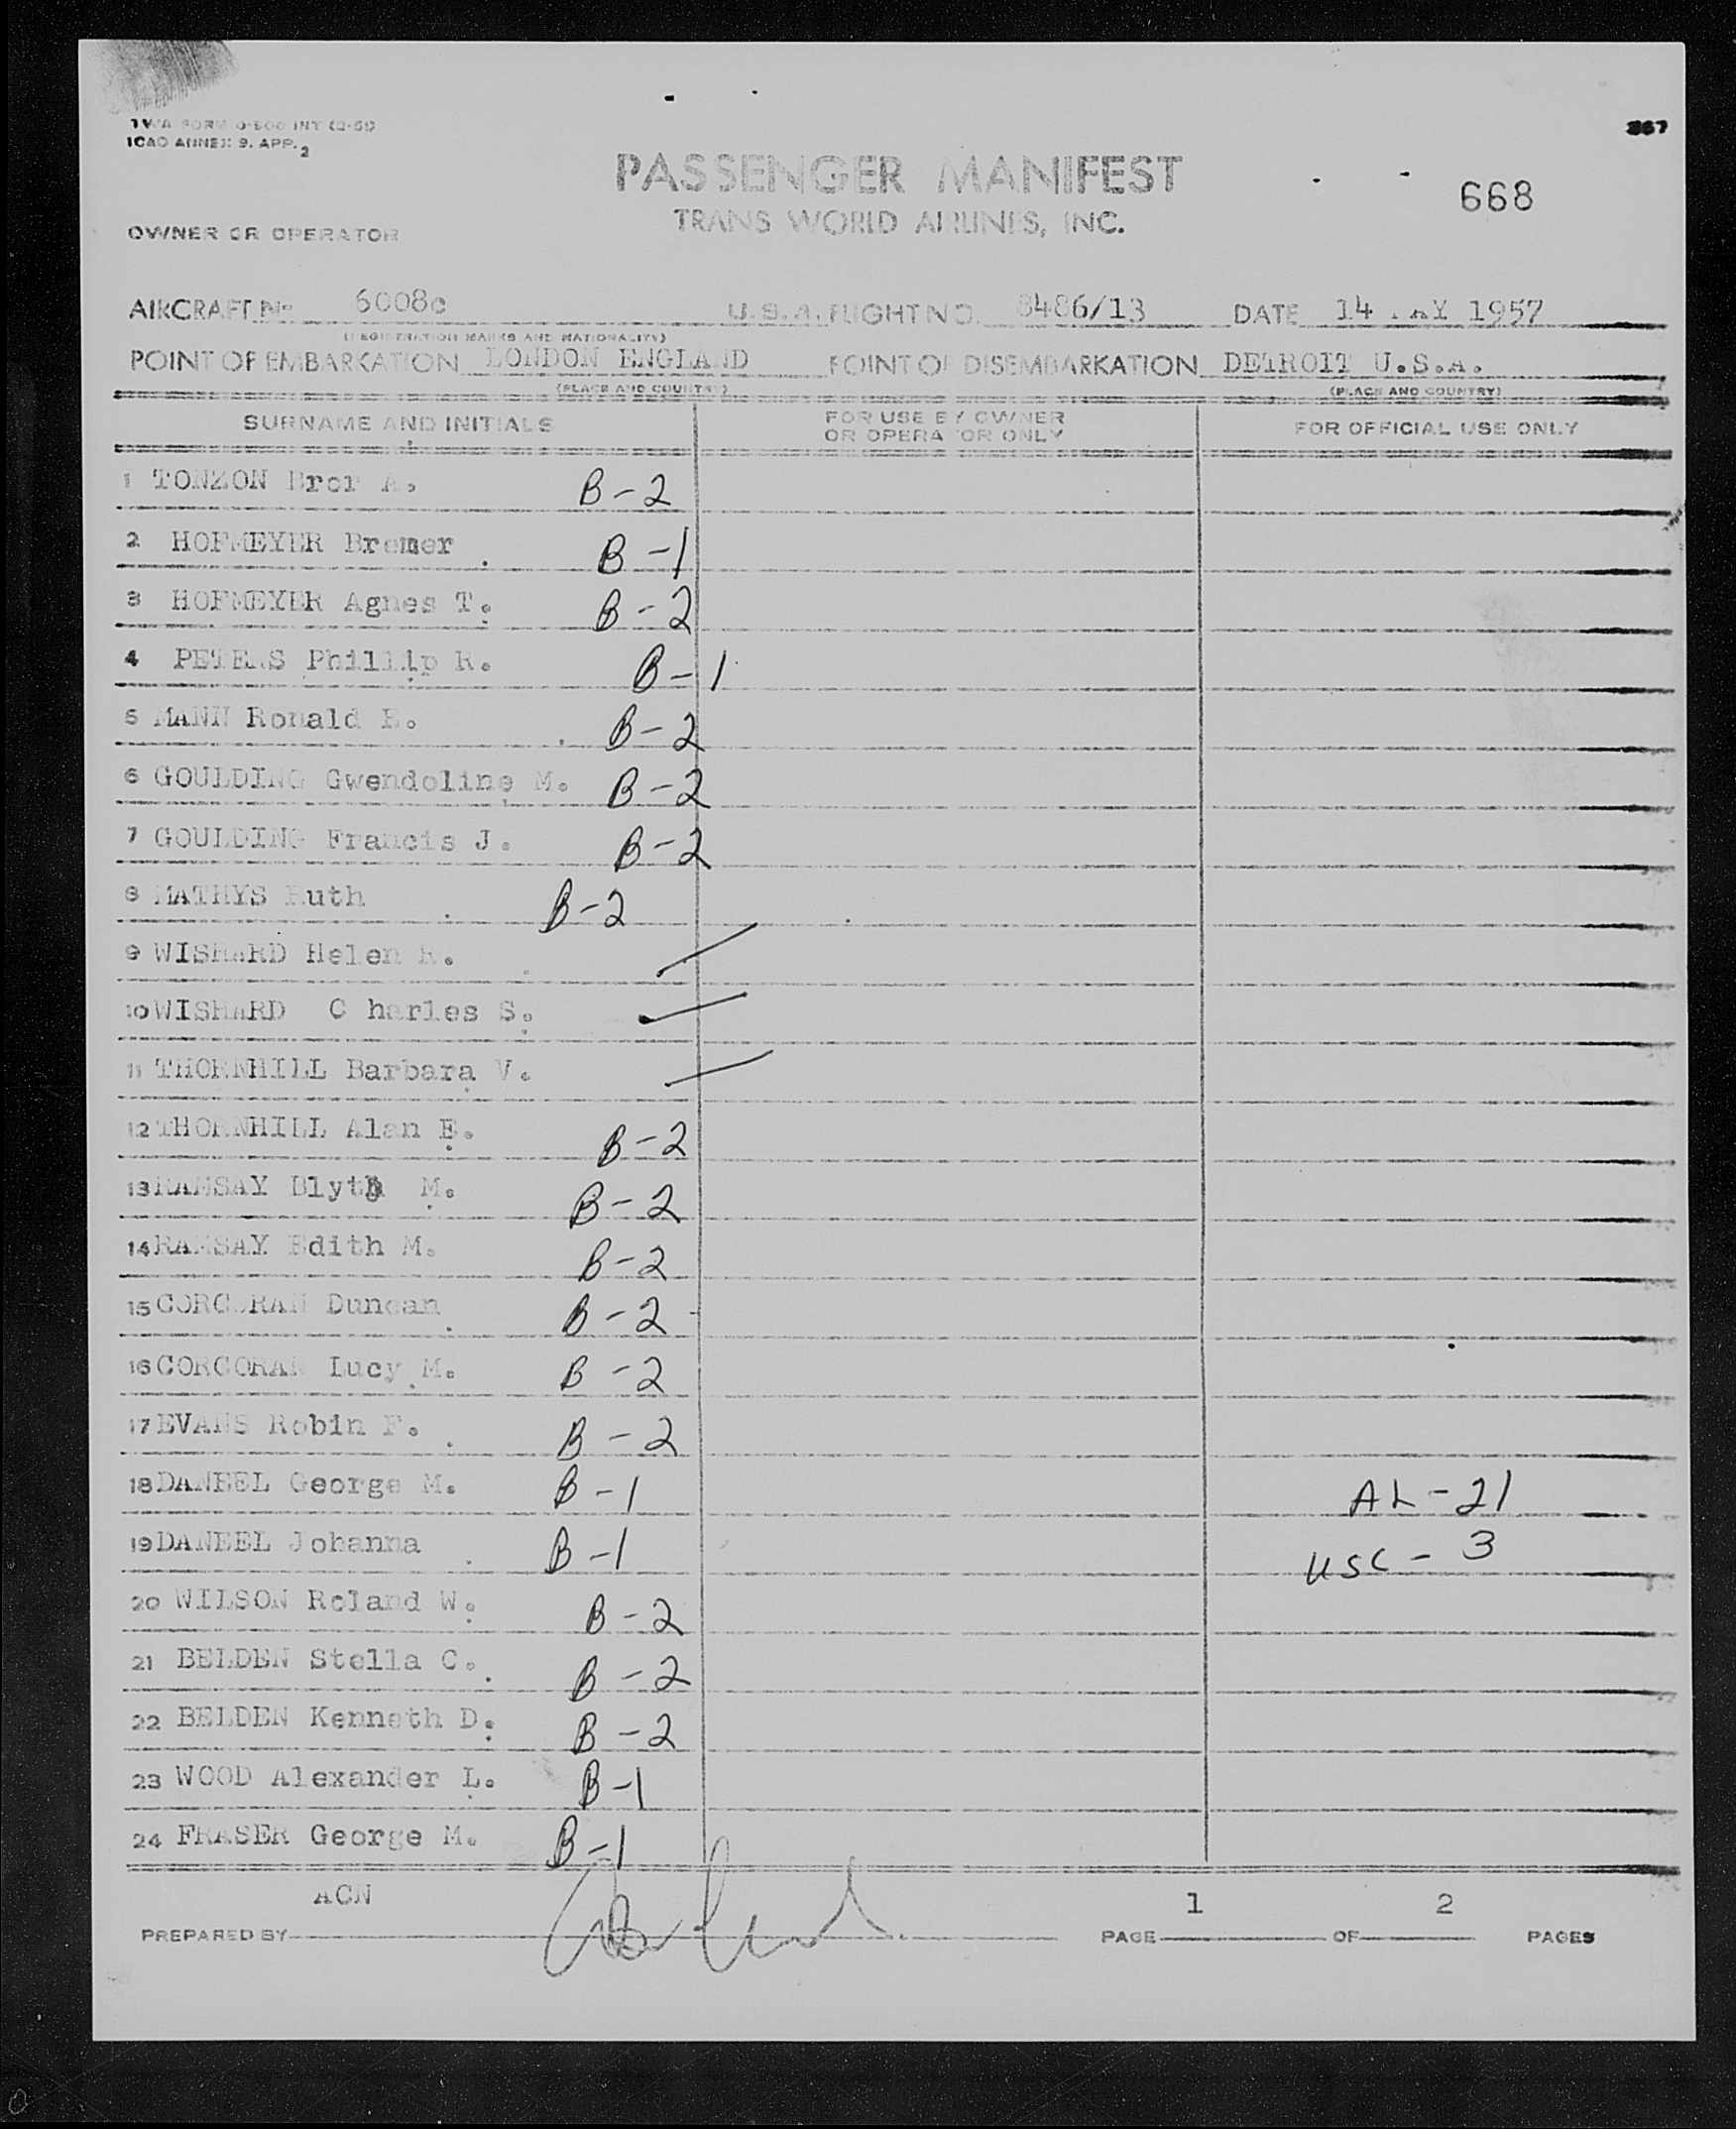 TWA FORM O-500 INT (2-51)
ICAO ANNEX 9. APP. 2
367
PASSENGER MANIFEST
668
TRANS WORLD AIRLINES, INC.
OWNER OR OPERATOR
AIRCRAFT No 6008c U.S.A. FLIGHT NO. 8486/13 DATE 14 MAY 1957
(REGISTRATION MARKS AND NATIONALITY)
POINT OF EMBARKATION LONDON ENGLAND POINT OF DISEMBARKATION DETROIT U.S.A.
(PLACE AND COUNTRY) (PLACE AND COUNTRY)
SURNAME AND INITIALS FOR USE BY OWNER OR OPERATOR ONLY FOR OFFICIAL USE ONLY
1 TONZON Bror A. B-2
2 HOFMEYER Bremer B-1
3 HOFMEYER Agnes T. B-2
4 PETERS Phillip R. B-1
5 MANN Ronald E. B-2
6 GOULDING Gwendoline M. B-2
7 GOULDING Francis J. B-2
8 MATHYS Ruth B-2
9 WISHARD Helen R.
10 WISHARD C harles S.
11 THORNHILL Barbara V.
12 THORNHILL Alan E. B-2
13 RAMSAY Blyth M. B-2
14 RAMSAY Edith M. B-2
15 CORCORAN Duncan B-2
16 CORCORAN Lucy M. B-2
17 EVANS Robin F. B-2
18 DANEEL George M. B-1 AL-21
19 DANEEL Johanna B-1 USC-3
20 WILSON Roland W. B-2
21 BELDEN Stella C. B-2
22 BELDEN Kenneth D. B-2
23 WOOD Alexander L. B-1
24 FRASER George M. B-1
ACN 1 2
PREPARED BY PAGE OF PAGES